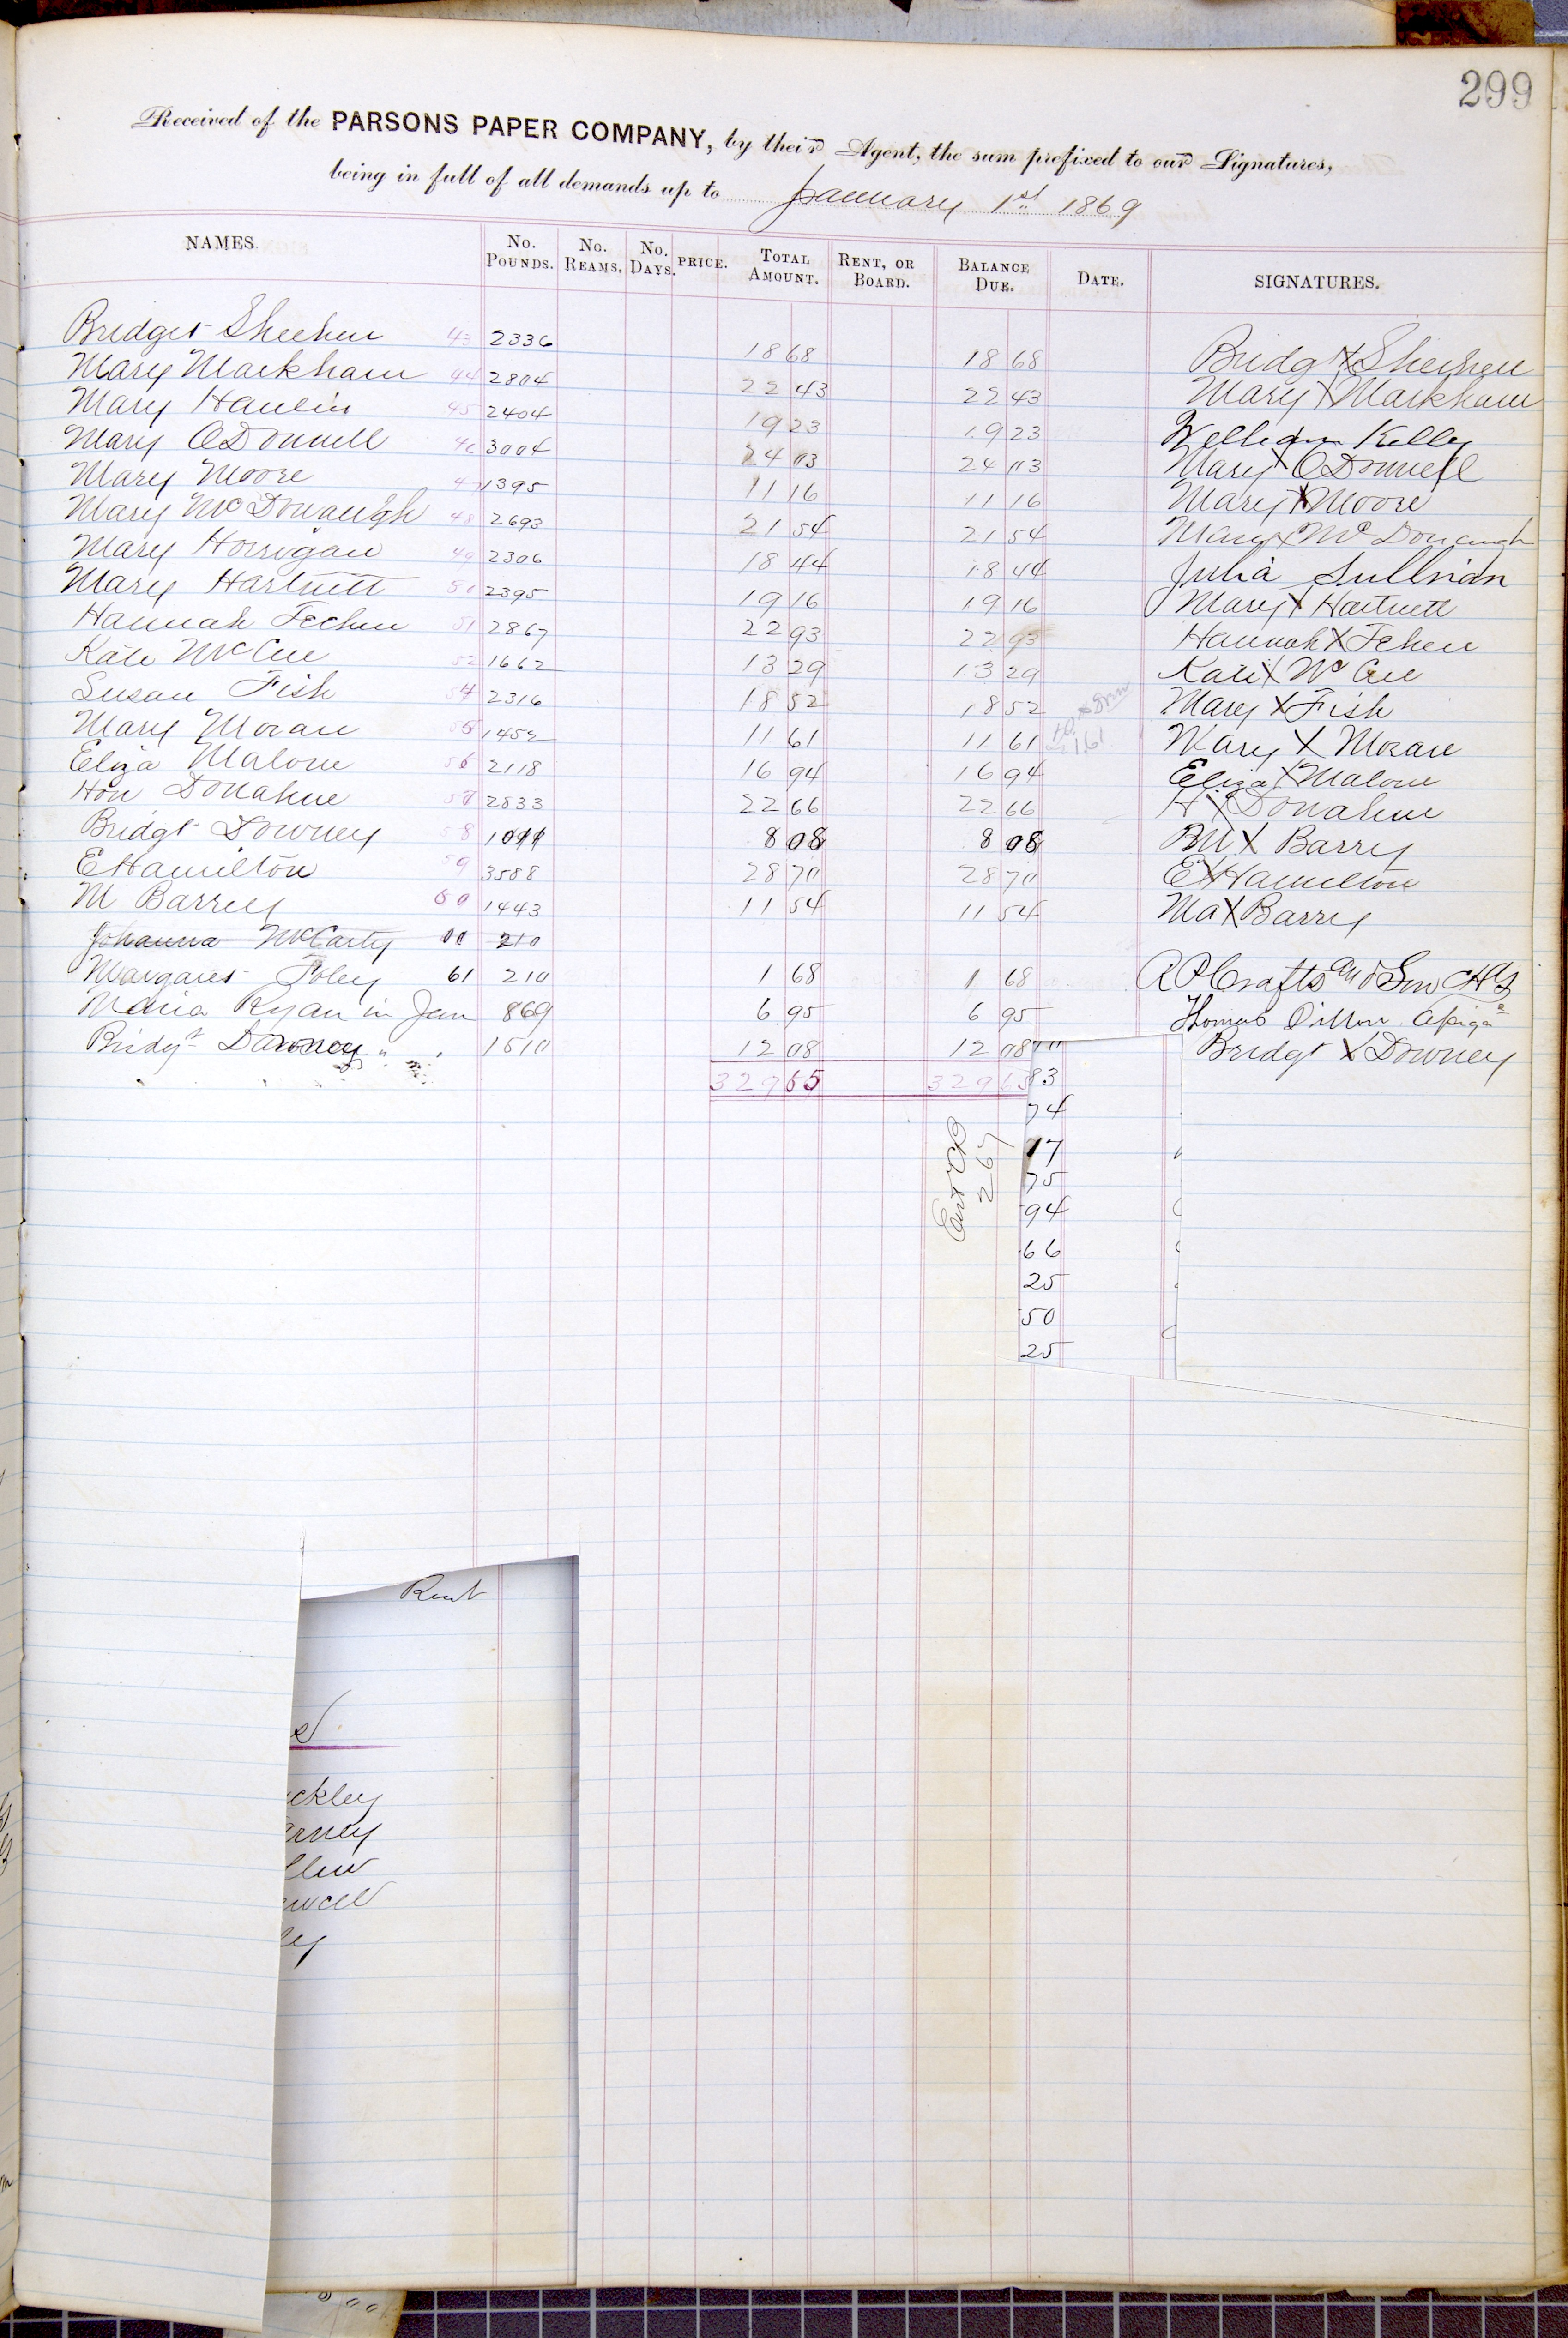 299
Received of the PARSONS PAPER COMPANY, by their Agent, the sum prefixed to our Signatures,
being in full of all demands up to January 1st 1869
NAMES. No. POUNDS. No. REAMS. No. DAYS. PRICE. TOTAL AMOUNT. RENT, OR BOARD. BALANCE DUE. DATE. SIGNATURES.
Bridget Sheehen 43 2336 18 68 18 68 Bridgt X Sheehen
Mary Markham 44 2804 22 43 22 43 Mary X Markham
Mary Hanlin 45 2404 19 23 19 23 William Kelley
Mary ODonnell 46 3004 24 03 24 03 Mary X ODonnell
Mary Moore 47 1395 11 16 11 16 Mary X Moore
Mary McDonaugh 48 2693 21 54 21 54 Mary X McDonaugh
Mary Horrigan 49 2306 18 44 18 44 Julia Sullivan
Mary Hartnett 50 2395 19 16 19 16 Mary X Hartnett
Hannah Feehen 51 2867 22 93 22 93 Hannah X Fehen
Kate McCue 52 1662 13 29 13 29 Kate X McCue
Susan Fish 54 2316 18 52 18 52 Mary X Fish
Mary Moran 55 1452 11 61 11 61 1161 Mary X Moran
Eliza Malone 56 2118 16 94 16 94 Eliza X Malone
Hon Donahue 57 2833 22 66 22 66 H X Donahue
Bridgt Downey 58 8 08 8 08 BM X Barry
E Hamilton 59 3588 28 70 28 70 E X Hamilton
M Barrey 60 1443 11 54 11 54 Ma X Barrey
Johanna McCarty 210
Margaret Foley 61 210 1 68 1 68 R P Crafts and Son
Maria Ryan in Jan 869 6 95 6 95 Thomas Dillon
Bridgt Downey " " 1510 12 08 12 08 Bridgt X Downey
329 65 329 65
83
74
17
75
94
66
25
50
25
267
Rent
ckley
erney
llin
ey